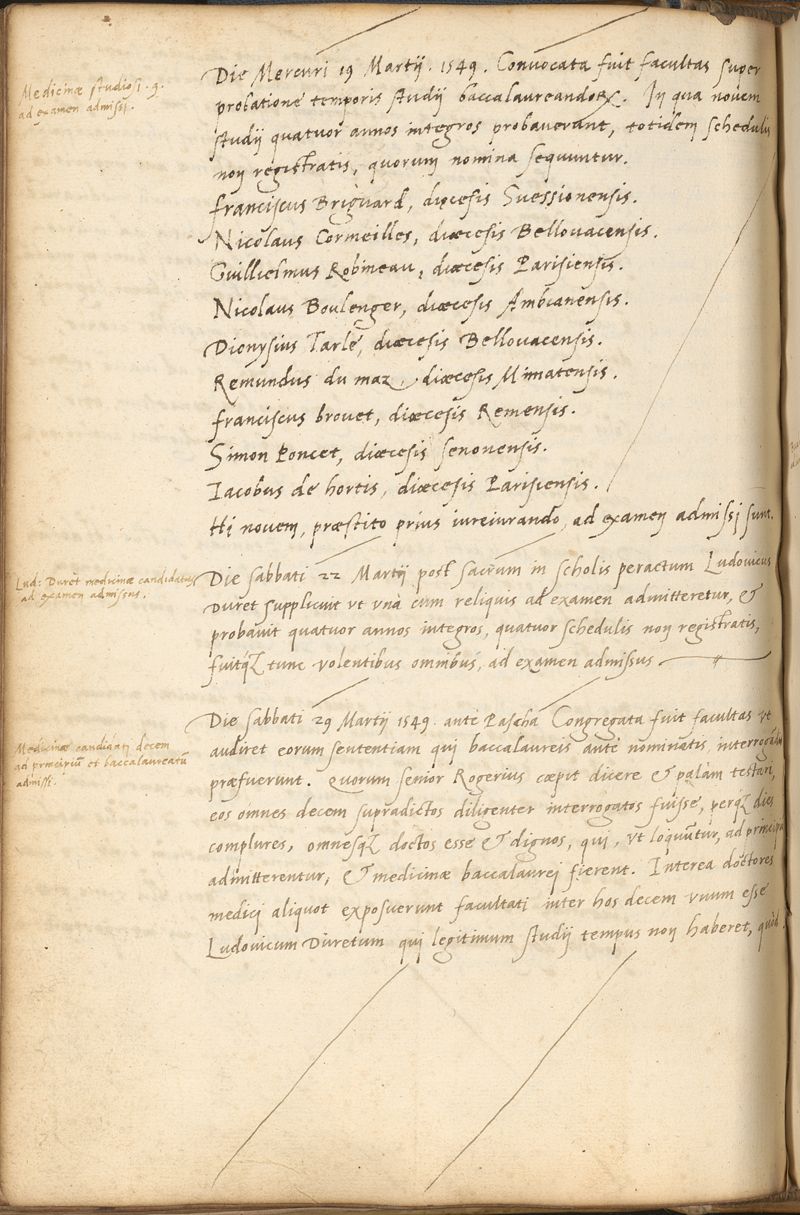 Medicinæ studiosi . 9.
ad examen admissi.
Die Mercuri 19 Martij . 1549 . Convocata fuit facultas super
probatione temporis studij baccalaureandoꝝ. In qua novem
studij quatuor annos integros probaverunt, totidem schedulis
non registratis, quorum nomina sequuntur.
Franciscus Briguard, diœcesis Suessionensis.
Nicolaus Cormeilles, diœcesis Bellovacensis.
Guillielmus Robineau, diœcesis Parisiensis.
Nicolaus Boulenger, diœcesis Ambianensis.
Dionysius Tarlé, diœcesis Bellovacensis.
Remundus du maz, diœcesis Mimatensis.
Franciscus brovet, diœcesis Remensis.
Simon Poncet, diœcesis senonensis.
Iacobus de hortis, diœcesis Parisiensis.
Hi novem, præstito prius iureiurando, ad examen admissi sunt.
Lud: Duret medicinæ candidatus
ad examen admissus.
Die sabbati 22 Martij post sacrum in scholis peractum Ludovicus
Duret supplicuit vt vnà cum reliquis ad examen admitteretur, &
probavit quatuor annos integros, quatuor schedulis non registratis,
fuitqꝫ tunc volentibus omnibus, ad examen admissus
Medicinæ candidati decem
ad principiū et baccalaureatū
admissi.
Die sabbati 29 Martij 1549 . ante Pascha Congregata fuit facultas vt
audiret eorum sententiam qui baccalaureis ante nominatis interrogandis
præfuerunt. Quorum senior Rogerius cœpit dicere & palàm testari,
eos omnes decem supradictos diligenter interrogatos fuisse, perqꝫ dies
complures, omnesqꝫ doctos esse & dignos, qui, vt loquūtur, ad principia
admitterentur, & medicinæ baccalaurei fierent. Interea doctores
medici aliquot exposuerunt facultati inter hos decem vnum esse
Ludovicum Duretum qui legitimum studij tempus non haberet, quòd